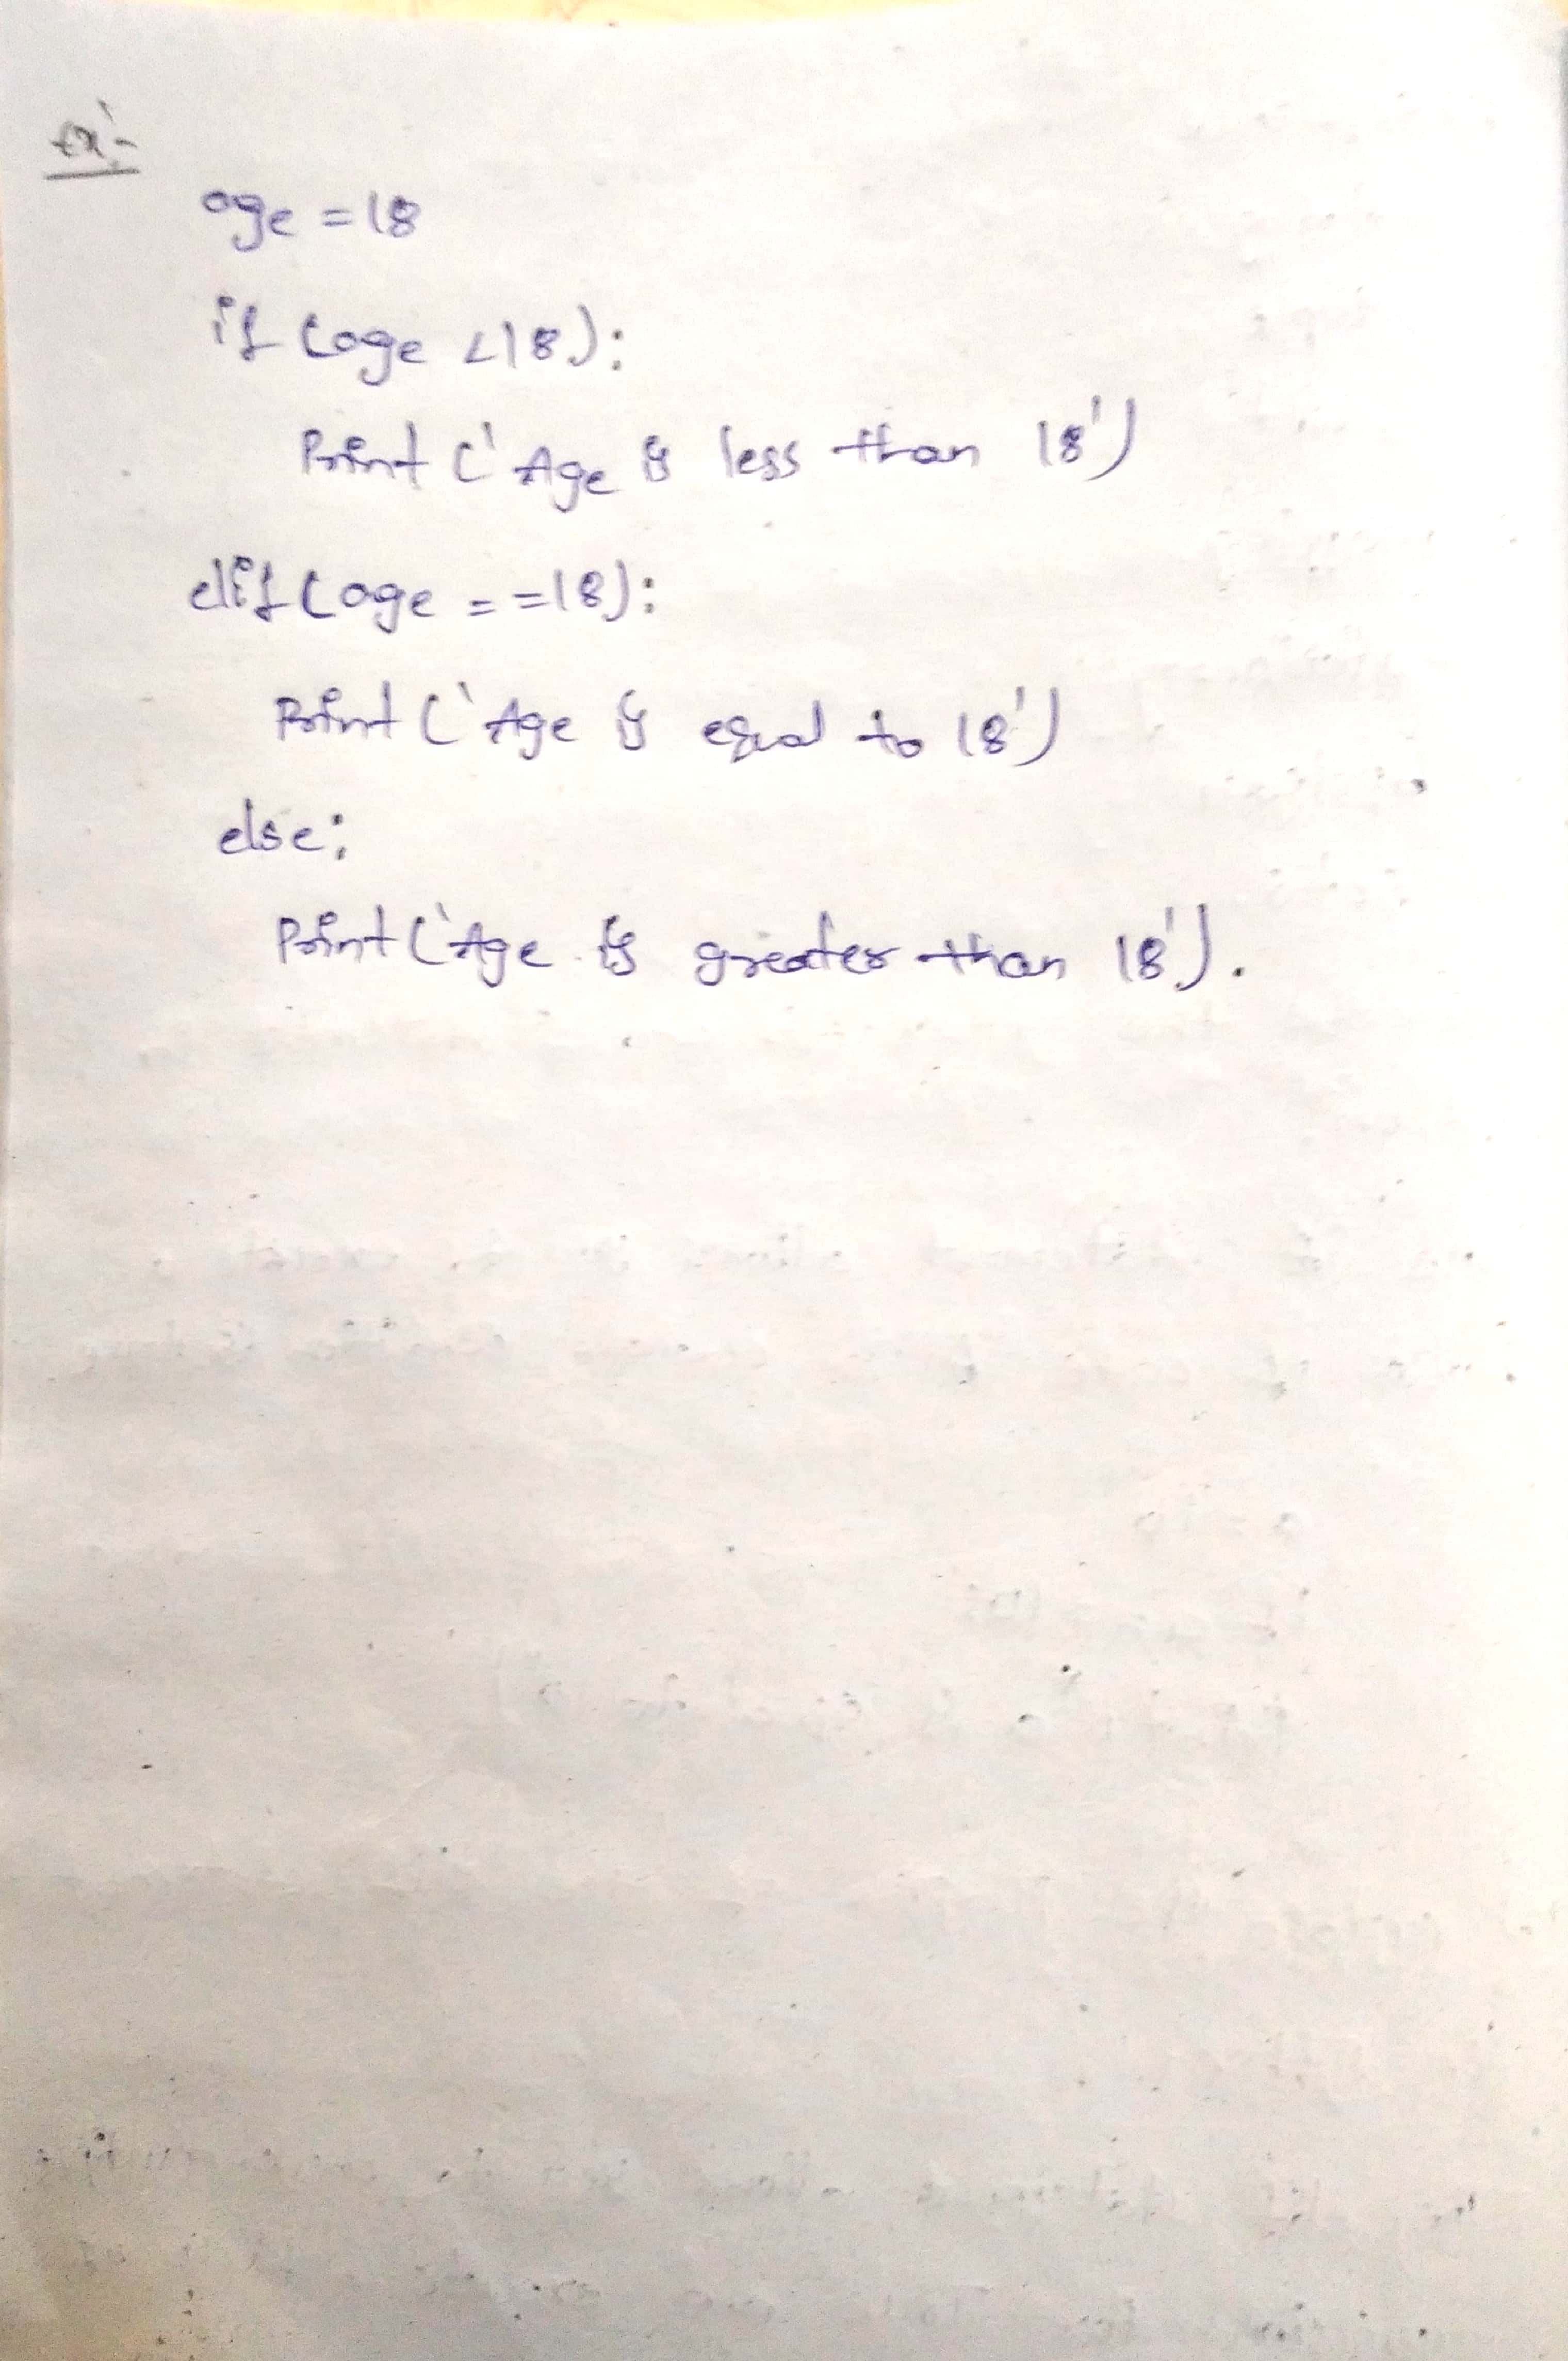 Ex:-
age = 18
if (age < 18):
Print ('Age is less than 18')
elif (age = = 18):
Print ('Age is equal to 18')
else:
Print ('Age is greater than 18').